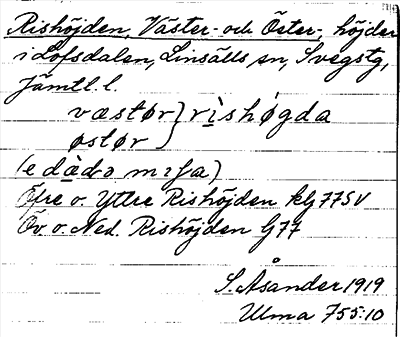 Rishöjden, Väster- och Öster-, höjder
i Lofsdalen, Linsälls sn, Svegstg,
Jämtl. l.
væstør } rìshøgda
østør
(e dà̱də mɪʃa)
Öfre o. Yttre Rishöjden kG 77SV
Öv. o. Ned. Rishöjden G77
S. Åsander 1919
Ulma 755:10